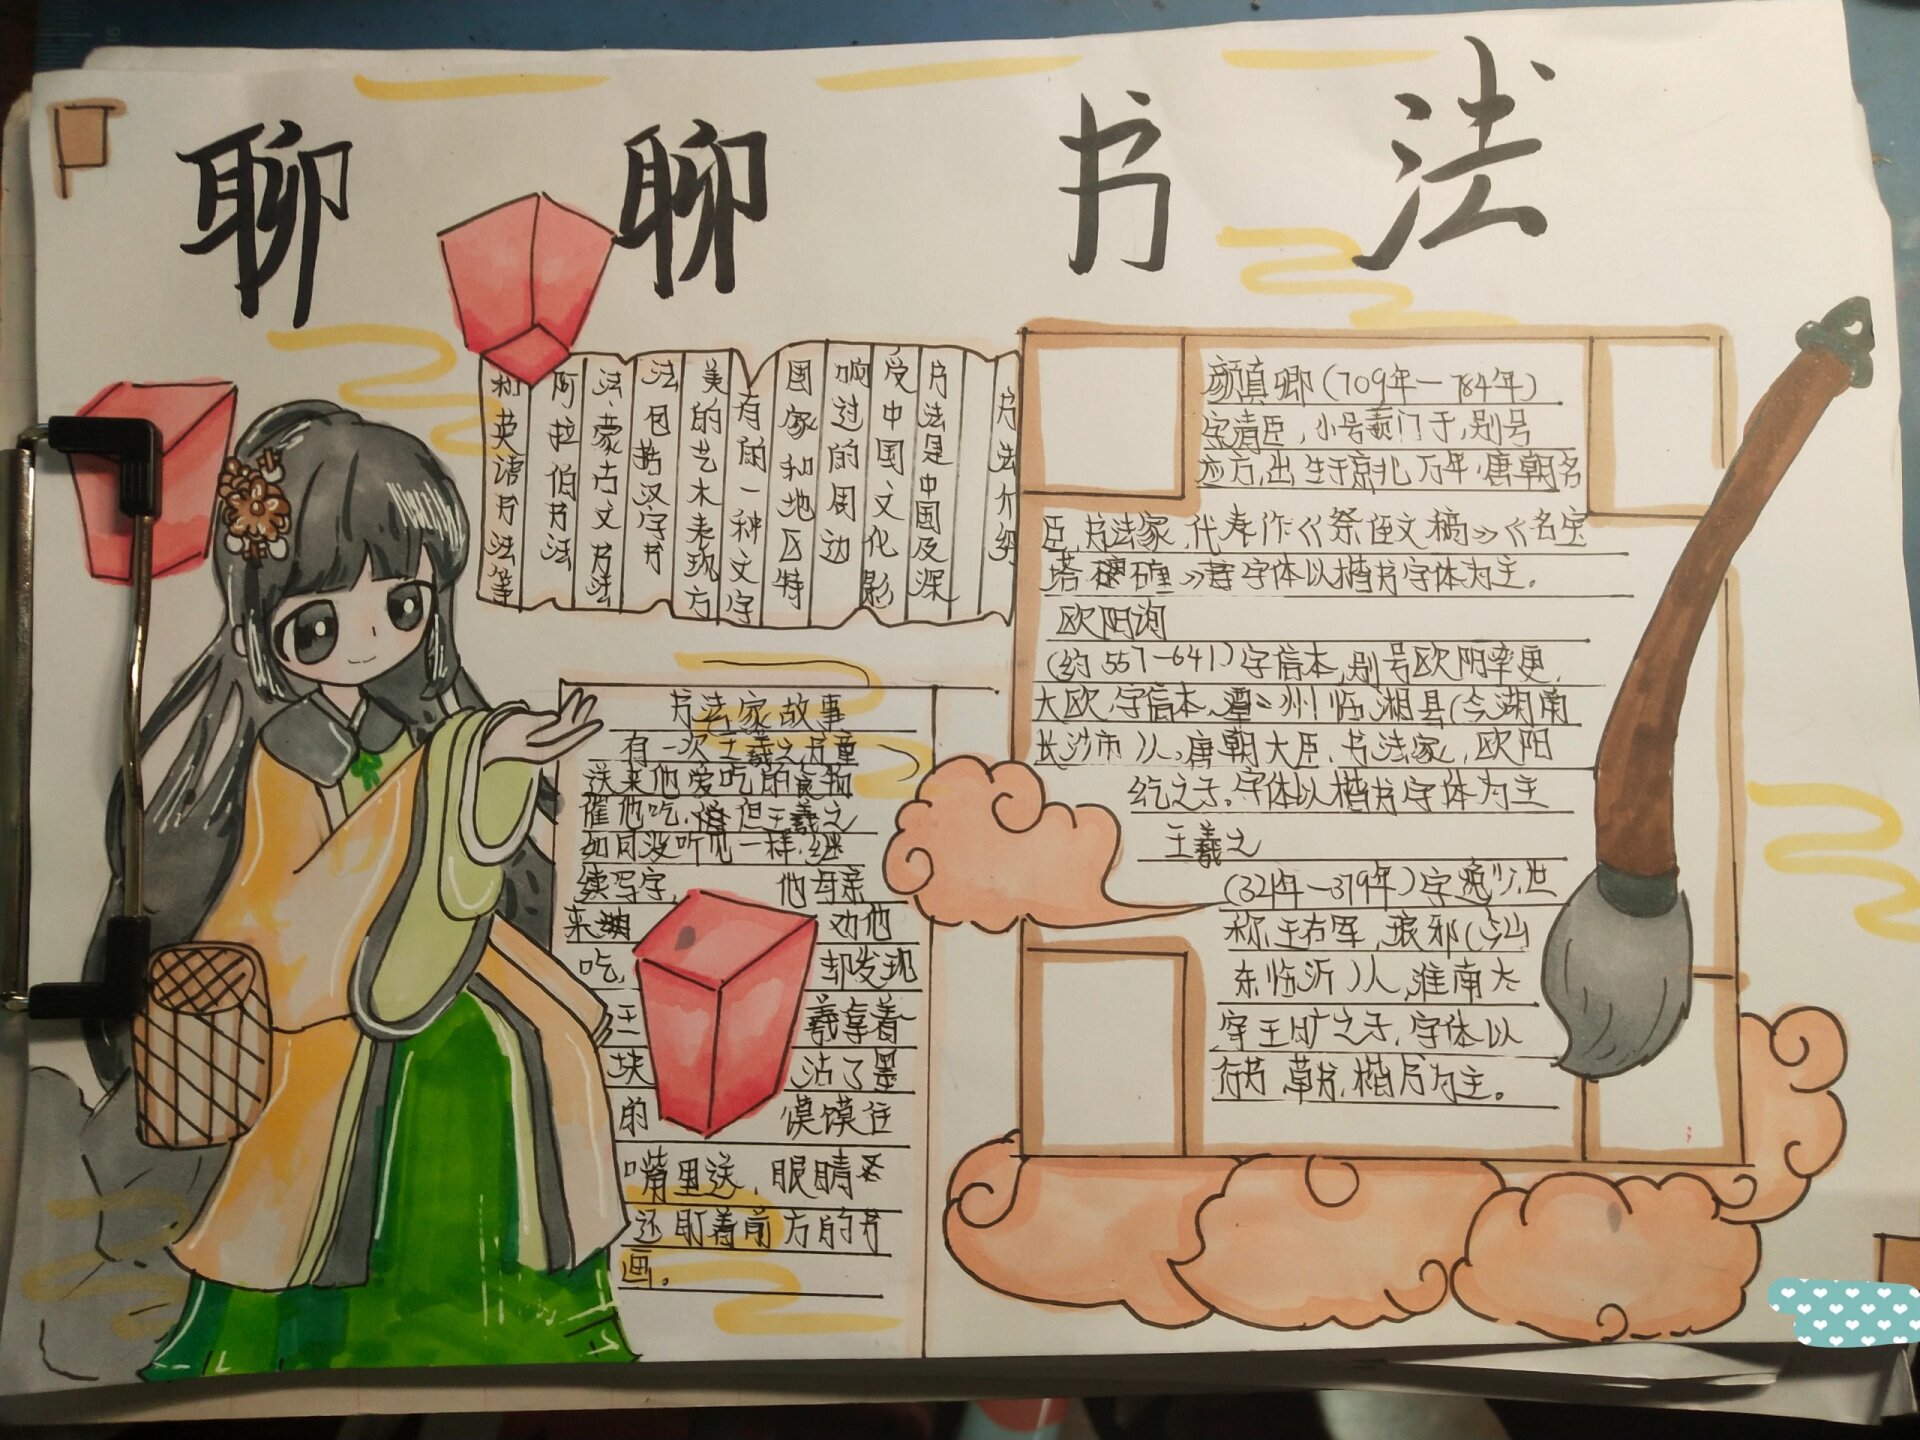 聊聊书法
书法介绍
书法是中国及深
受中国文化影
响过的周边
国家和地区特
有的一种文字
美的艺术来现方
法包括汉字书
法、蒙古文书法
阿拉伯书法
和英语书法等
书法家故事
有一次王羲之书童
送来他爱吃的食物
催他吃,但王羲之
如同没听见一样,继
续写字, 他母亲
来 劝他
吃, 却发现
王 羲享着一
块 沾了墨
的 馍馍往
嘴里送,眼睛圣
还盯着前方的书
画。
颜真卿(709年—784年)
字清臣,小号羡门子,别号
应方,出生于京兆万年,唐朝名
臣,书法家,代表作《祭侄文稿》《名宝
塔碑》字体以楷书字体为主。
欧阳询
(约557—641)字信本,别号欧阳率更,
大欧,字信本,潭州临湘县(今湖南
长沙市)人,唐朝大臣,书法家,欧阳
纥之子,字体以楷书字体为主
王羲之
(321年—379年)字逸少,世
称王右军,琅邪(今山
东临沂)人,淮南太
宇王旷之子,字体以
行书,草书,楷书为主。